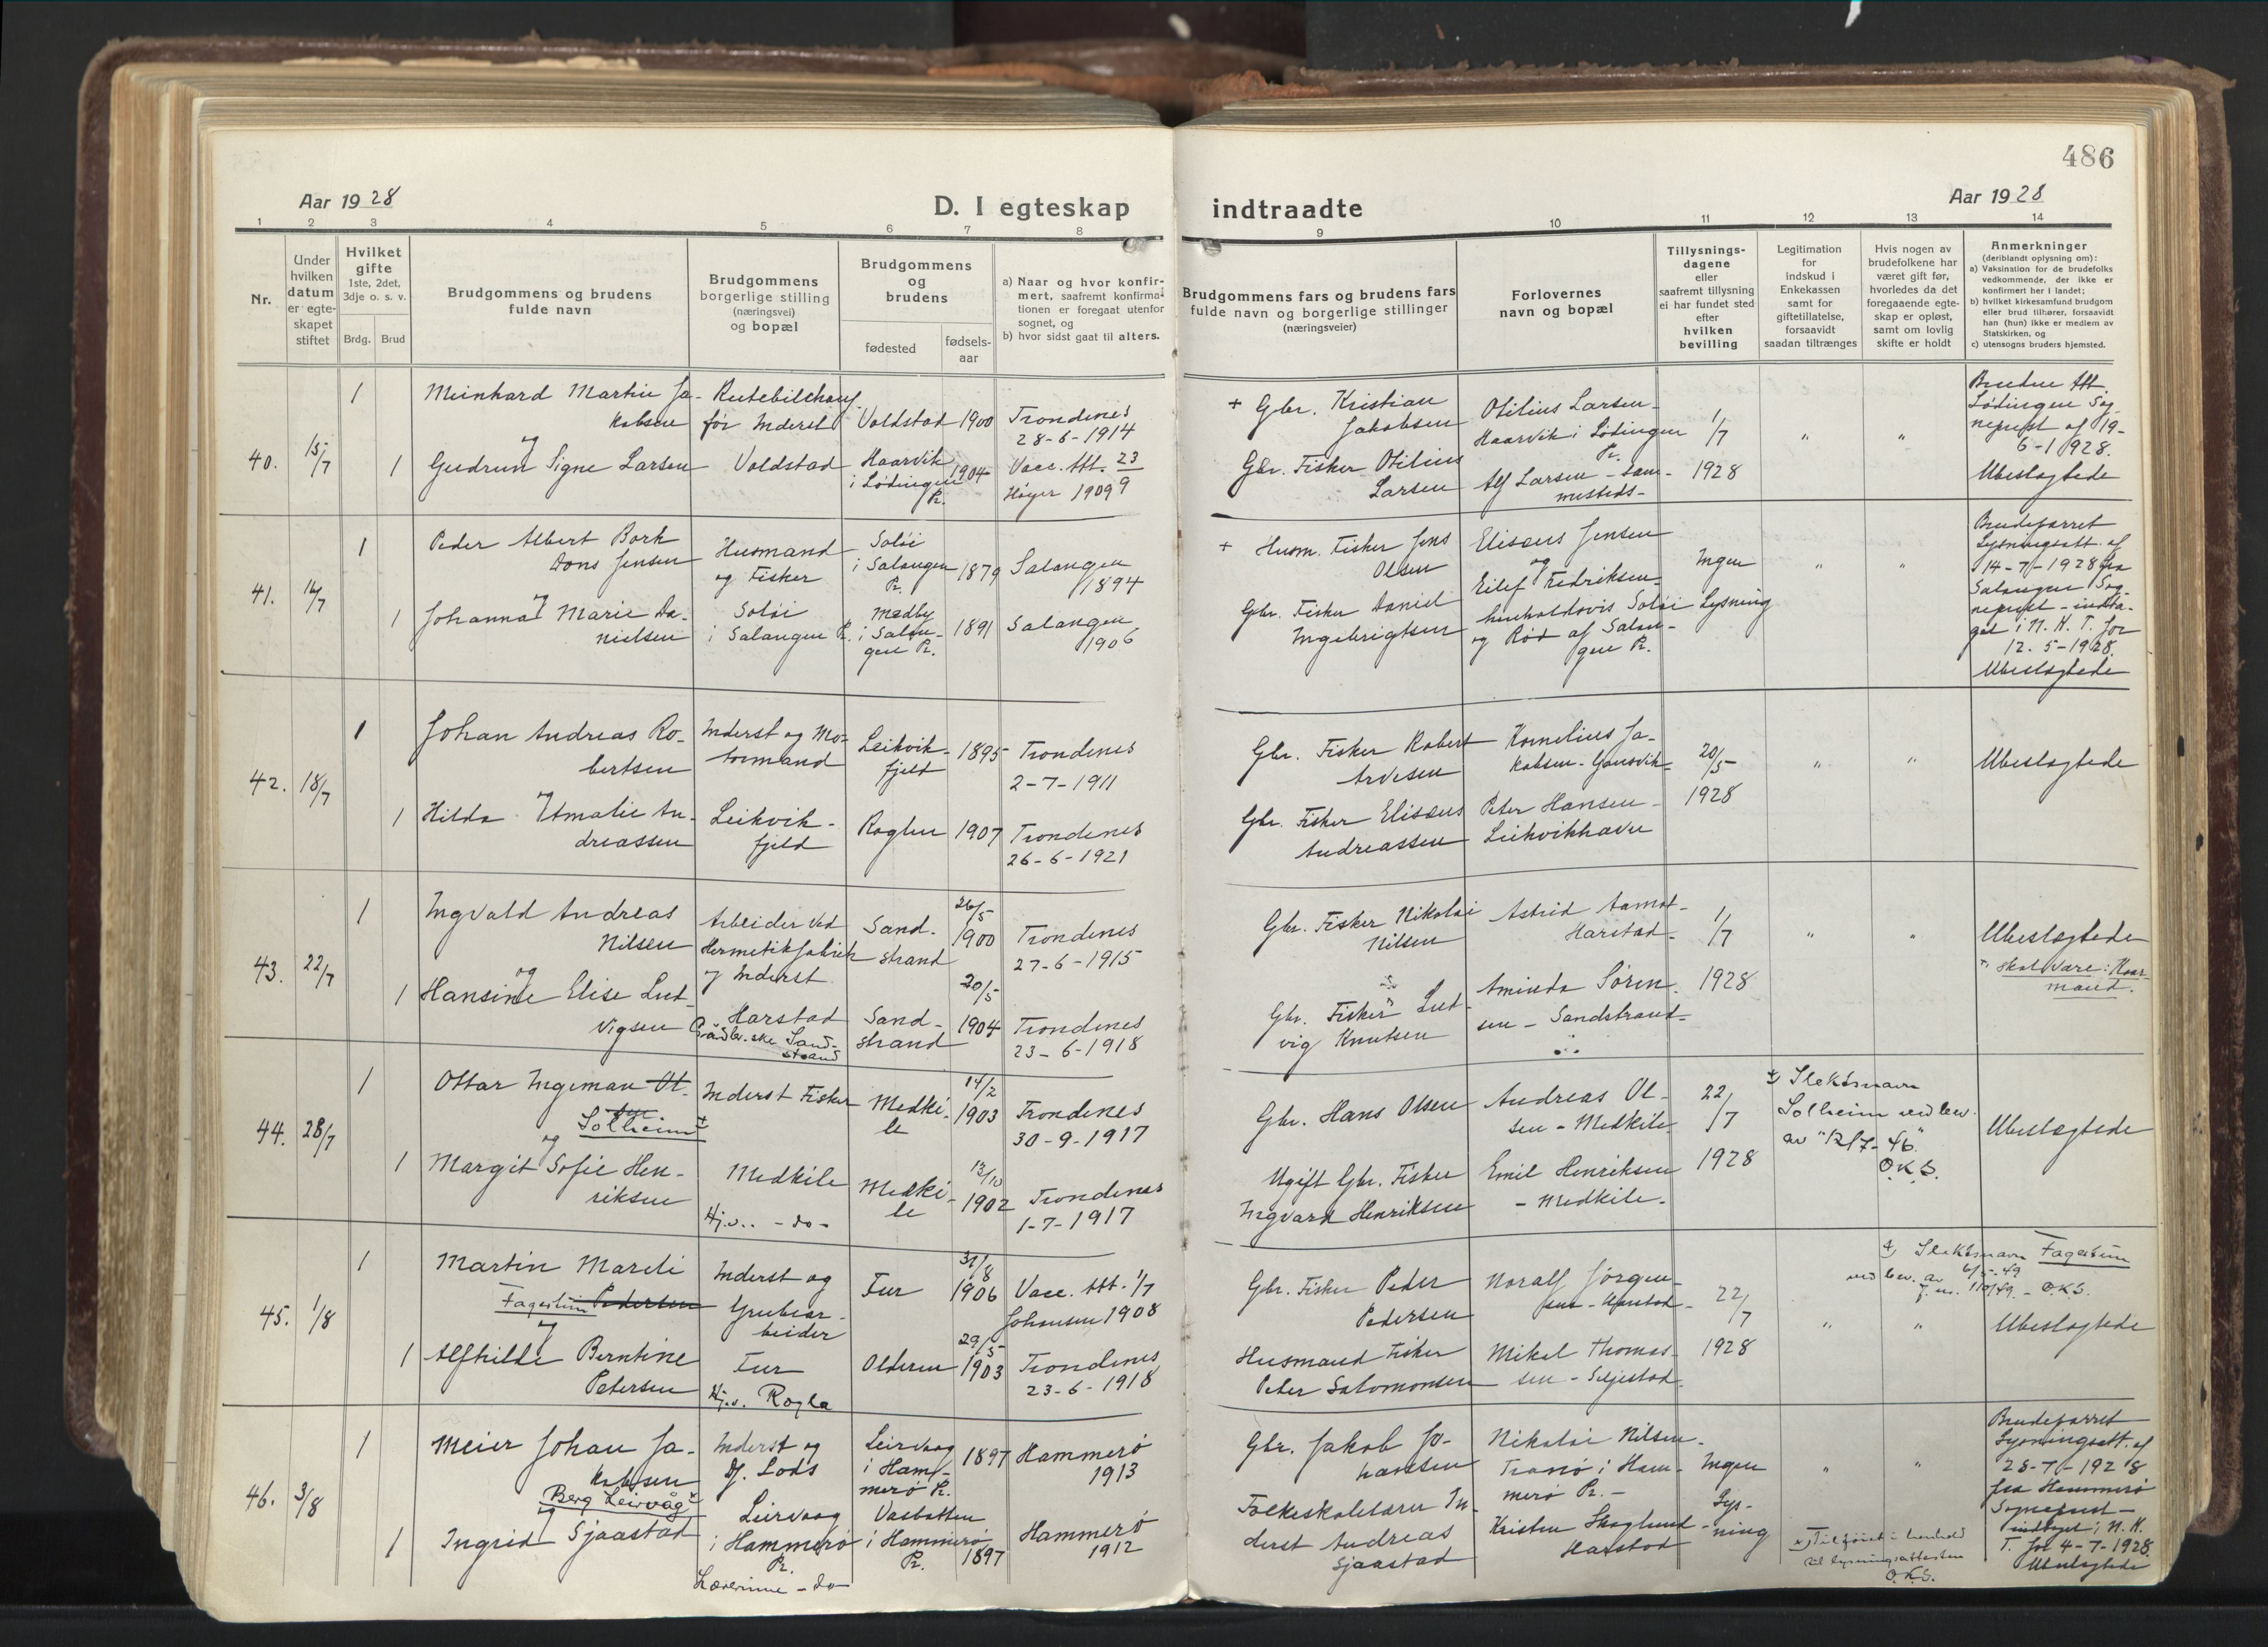 486
Aar 1928
D. I egteskap indtraadte
Aar 1928
1 2 3 4 5 6 7 8 9 10 11 12 13 14
Nr.
Under
hvilken
datum
er egte-
skapet
stiftet
Hvilket
gifte
1ste, 2det,
3dje o. s. v.
Brdg. Brud
Brudgommens og brudens
fulde navn
Brudgommens
borgerlige stilling
(næringsvei)
og bopæl
Brudgommens
og
brudens
fødested
fødsels-
aar
a) Naar og hvor konfir-
mert, saafremt konfirma-
tionen er foregaat utenfor
sognet, og
b) hvor sidst gaat til alters.
Brudgommens fars og brudens fars
fulde navn og borgerlige stillinger
(næringsveier)
Forlovernes
navn og bopæl
Tillysnings-
dagene
eller
saafremt tillysning
ei har fundet sted
efter
hvilken
bevilling
Legitimation
for
indskud i
Enkekassen
samt for
giftetillatelse,
forsaavidt
saadan tiltrænges
Hvis nogen av
brudefolkene har
været gift før,
hvorledes da det
foregaaende egte-
skap er opløst,
samt om lovlig
skifte er holdt
Anmerkninger
(deriblandt oplysning om):
a) Vaksination for de brudefolks
vedkommende, der ikke er
konfirmert her i landet;
b) hvilket kirkesamfund brudgom
eller brud tilhører, forsaavidt
han (hun) ikke er medlem av
Statskirken, og
c) utensogns bruders hjemsted.
40.
15/7
1
1
Meinhard Martin Ja-
kobsen
og
Gudrun Signe Larsen
Rutebilchauf
før Inderst
Voldstad
Voldstad 1900
Haarvik
i Lødingen 1904
Pr.
Trondenes
28-6-1914
Vacc. Att. 23/9
Høyer 1909
+ Gbr. Kristian
Jakobsen
Gbr. Fisker Otilius
Larsen
Otilius Larsen-
Haarvik i Lødingen
Pr.
Alf Larsen - sam-
musteds-
1/7
1928
"
"
Bruden Att.
Lødingen Sog-
neprest af 19-
6-1928.
Ubeslægtede
41.
16/7
1
1
Peder Albert Bork
Dons Jensen
og
Johanna Marie Da-
nielsen
Husmand
og Fisker
Soløi
i Salangen Pr.
Soløi
i Salangen 1879
Pr.
Medby
i Salan- 1891
gen Pr.
Salangen
1894
Salangen
1906
+ Husm. Fisker Jens
Olsen
Gbr. Fisker Daniel
Ingebrigtsen
Elisæus Jensen
og
Eilef Fredriksen-
henholdsvis Soløi
og Rød af Salan-
gen Pr.
Ingen
Lysning
"
"
Brudeparret
Lysningsatt. af
14-7-1928 fra
Salangen Sog-
neprest - indta-
get i N. K. T. for
12. 5-1928.
Ubeslægtede
42.
18/7
1
1
Johan Andreas Ro-
bertsen
og
Hilda Amalie An-
dreassen
Inderst og Mo-
tormand
Leikvik-
fjeld
Leikvik- 1895
fjeld
Roglen 1907
Trondenes
2-7-1911
Trondenes
26-6-1921
Gbr. Fisker Robert
Arvesen
Gbr. Fisker Elisæus
Andreassen
Kornelius Ja-
kobsen - Gausvik
Peter Hansen-
Leikvikhavn
20/5
1928
"
"
Ubeslægtede
43.
22/7
1
1
Ingvald Andreas
Nilsen
og
Hansine Elise Lud-
vigsen
Arbeider ved
Hermetikfabrik
og Inderst
Harstad
Sand-
strand
Sand-
strand
26/5
1900
Sand-
strand
20/5
1904
Trondenes
27-6-1915
Trondenes
23-6-1918
Gbr. Fisker Nikolai
Nilsen
Gbr. Fisker Lud-
vig Knutsen
Astrid Aamot-
Harstad-
Aminda Sørin-
sen - Sandstrand-
1/7
1928
"
"
Ubeslægtede
skal være: Kaar-
mand.
44.
28/7
1
1
Ottar Ingeman Ol-
sen
Solheim +
og
Margit Sofie Hen-
riksen
Inderst Fisker
Medkile
Hj.v. - do -
Medki-
le
14/2
1903
Medki-
le
13/10
1902
Trondenes
30-9-1917
Trondenes
1-7-1917
Gbr. Hans Olsen
Ugift Gbr. Fisker
Ingvard Henriksen
Andreas Ol-
sen - Medkile
Emil Henriksen
- Medkile-
22/7
1928
+) Slektsnavn
Solheim ved bev.
av 12/7-46.
O.K.S.
Ubeslægtede
45.
1/8
1
1
Martin Mareli
Fagerheim Pedersen
og
Alfhilde Berntine
Petersen
Inderst og
Grubear-
beider
Fur
Hj.v. Rogla
Fur
31/8
1906
Olderen
29/5
1903
Vacc. Att. 1/7
Johansen 1908
Trondenes
23-6-1918
Gbr. Fisker Peder
Pedersen
Husmand Fisker
Peter Salomonsen
Noralf Jørgen-
sen - Harstad-
Mikal Thomas-
sen - Seljestad
22/7
1928
+) Slektsnavn
ved bev. av 6/5-49
O.K.S.
"
"
Ubeslægtede
46.
3/8
1
1
Meier Johan Ja-
kobsen
Berg Leirvåg x
og
Ingrid Sjaastad
Inderst og
Dj. Lods
Leirvaag
i Hammerø
Pr.
Lærerinne - do -
Leirvaag
i Ham- 1897
merø Pr.
Vasbotten
i Hammerø
Pr. 1897
Hammerø
1913
Hammerø
1912
Gbr. Jakob Jo-
hansen
Folkeskolelærer In-
derst Andreas
Sjaastad
Nikolai Nilsen-
Tranø i Ham-
merø Pr. -
Kristen Skoglund-
Harstad
Ingen
Lys-
ning
"
"
x) Tilføiet i henhold
til lysningsattesten
O.K.S.
Brudeparret
Lysningsatt. af
28-7-1928
fra Hammerø
Sogneprest -
indtaget i N. K.
T. for 4-7-1928.
Ubeslægtede